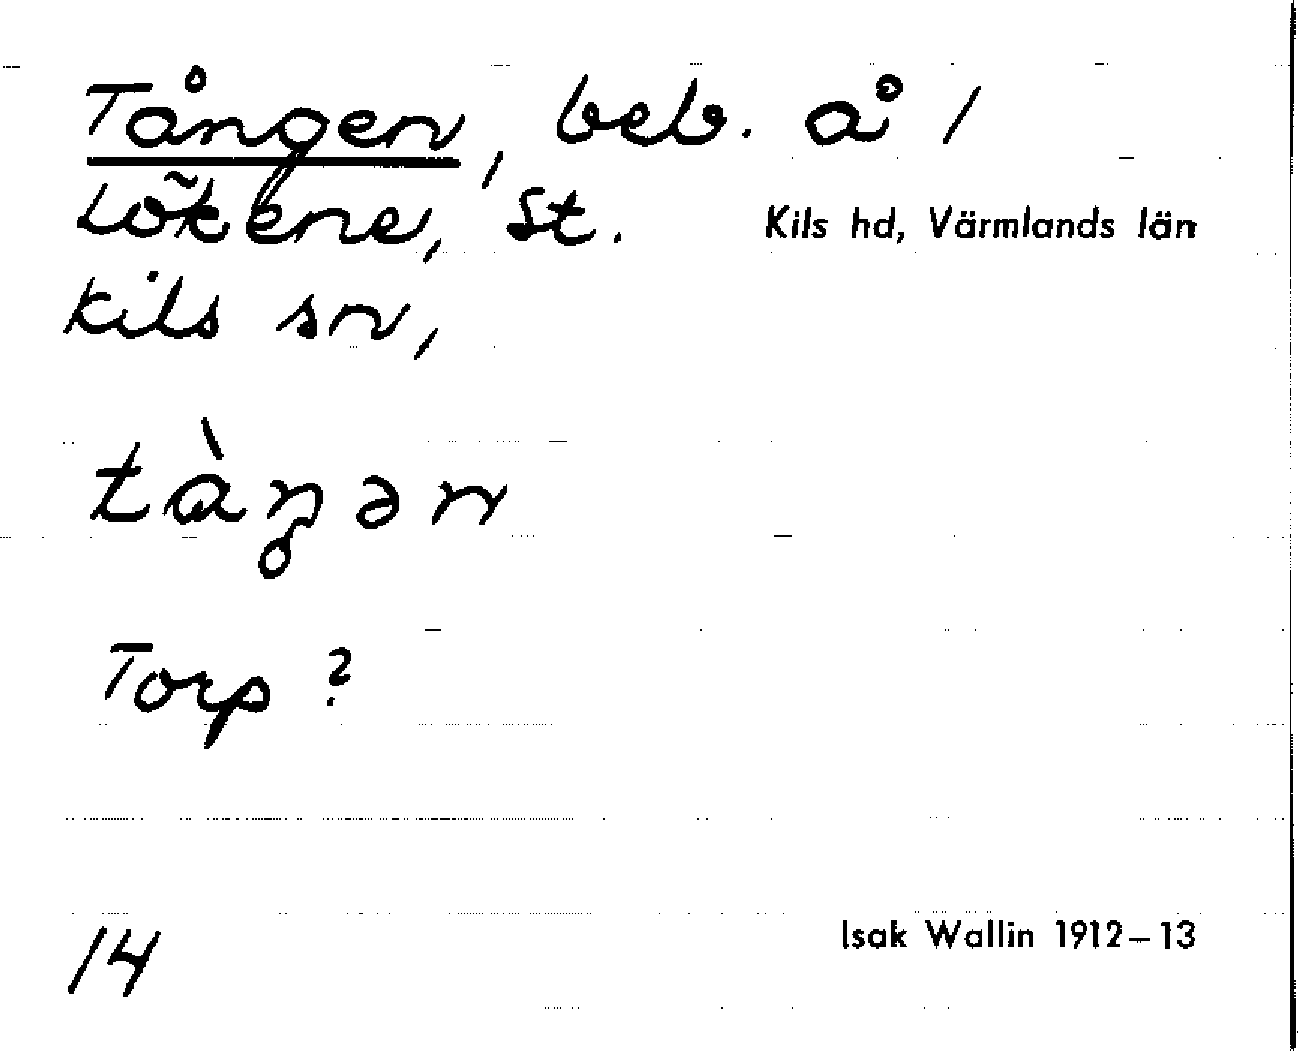 Tången, beb. å /
Lökene, St.
Kils hd, Värmlands län
Kils sn,
tàŋən
Torp ?
14
Isak Wallin 1912–13